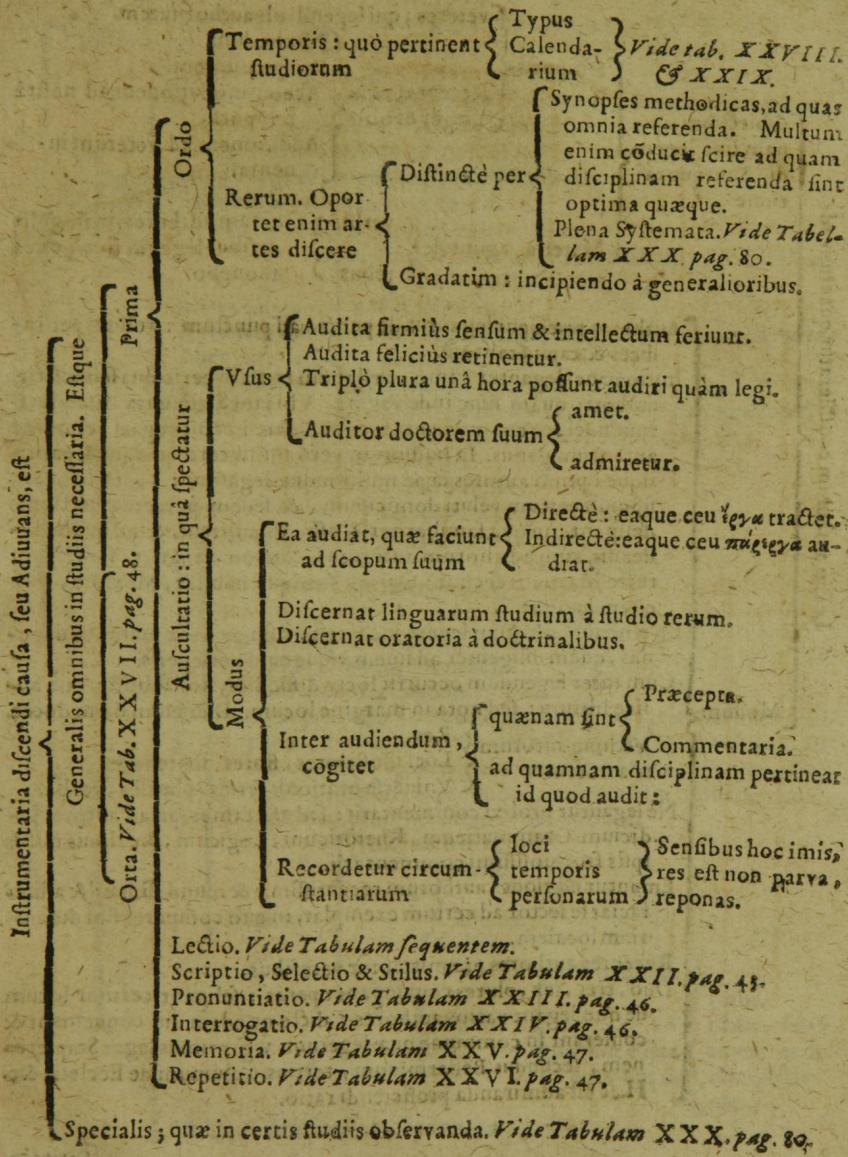 Instrumentaria discendi causa, seu Adiuuans, est
Generalis omnibus in studiis necessaria. Estque
Prima
Ordo
Temporis: quò pertinent
studiorum
Typus
Calenda-
rium
Vide tab. XXVIII.
& XXIX.
Rerum. Opor
tet enim ar-
tes discere
Distinctè per
Synopses methodicas, ad quas
omnia referenda. Multum
enim cōducit scire ad quam
disciplinam referenda sint
optima quæque.
Plena Systemata. Vide Tabel-
lam XXX pag. 80.
Gradatim: incipiendo à generalioribus.
Auscultatio: in quâ spectatur
Vsus
Audita firmiùs sensum & intellectum feriunt.
Audita feliciùs retinentur.
Triplò plura unâ hora possunt audiri quàm legi.
Auditor doctorem suum
amet.
admiretur.
Modus
Ea audiat, quæ faciunt
ad scopum suum
Directè: eaque ceu ἔργα tractet.
Indirectè: eaque ceu πάρεργα au-
diat.
Discernat linguarum studium à studio rerum.
Discernat oratoria à doctrinalibus.
Inter audiendum,
cogitet
quænam sint
Præcepta.
Commentaria.
ad quamnam disciplinam pertineat
id quod audit:
Recordetur circum-
stantiarum
loci
temporis
personarum
Sensibus hoc imis,
res est non parva,
reponas.
Lectio. Vide Tabulam sequentem.
Scriptio, Selectio & Stilus. Vide Tabulam XXII. pag. 45.
Pronuntiatio. Vide Tabulam XXIII. pag. 46.
Interrogatio. Vide Tabulam XXIV. pag. 46.
Memoria. Vide Tabulam XXV. pag. 47.
Repetitio. Vide Tabulam XXVI. pag. 47.
Orta. Vide Tab. XXVII. pag. 48.
Specialis; quæ in certis studiis observanda. Vide Tabulam XXX. pag. 80.